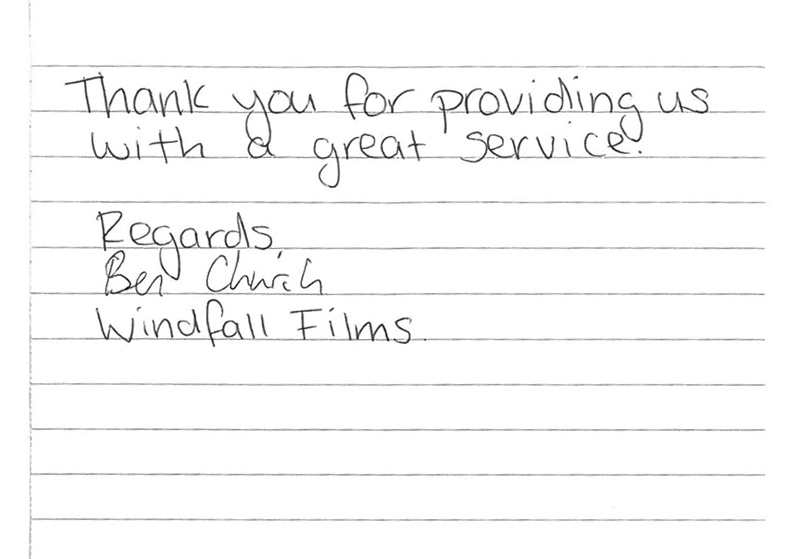 Thank you for providing us
with a great service.
Regards,
Ben Church
Windfall Films.